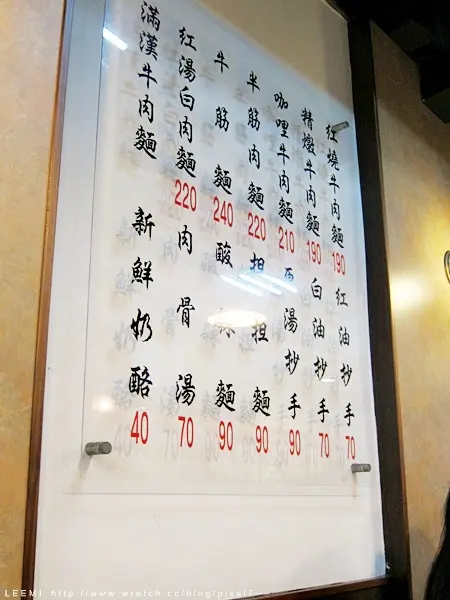 紅燒牛肉麵 190 紅油抄手 70
精燉牛肉麵 190 白油抄手 70
咖哩牛肉麵 210 湯抄手 90
半筋肉麵 220 担担麵 90
牛筋麵 240 酸 麵 90
紅湯白肉麵 220 肉骨湯 70
滿漢牛肉麵 新鮮奶酪 40
LEEMI http://www.wretch.cc/blog/pixel7